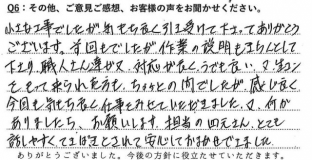 Q6：その他、ご意見ご感想、お客様の声をお聞かせください。
小さな工事でしたが気持ち良く引き受けて下さってありがとう
ございます。前回もでしたが作業の説明もきちんとして
下さり、職人さん達が又、対応が良くうでも良い。又エアコン
をもって来られた方も、ちょっとの間でしたが感じ良く
今回も気持ち良く仕事をみせていただきました。又、何か
ありましたら、お願いします。担当の四元さん、とても
話しやすくてきぱきとされて安心してまかせられました。
ありがとうございました。今後の方針に役立たせていただきます。